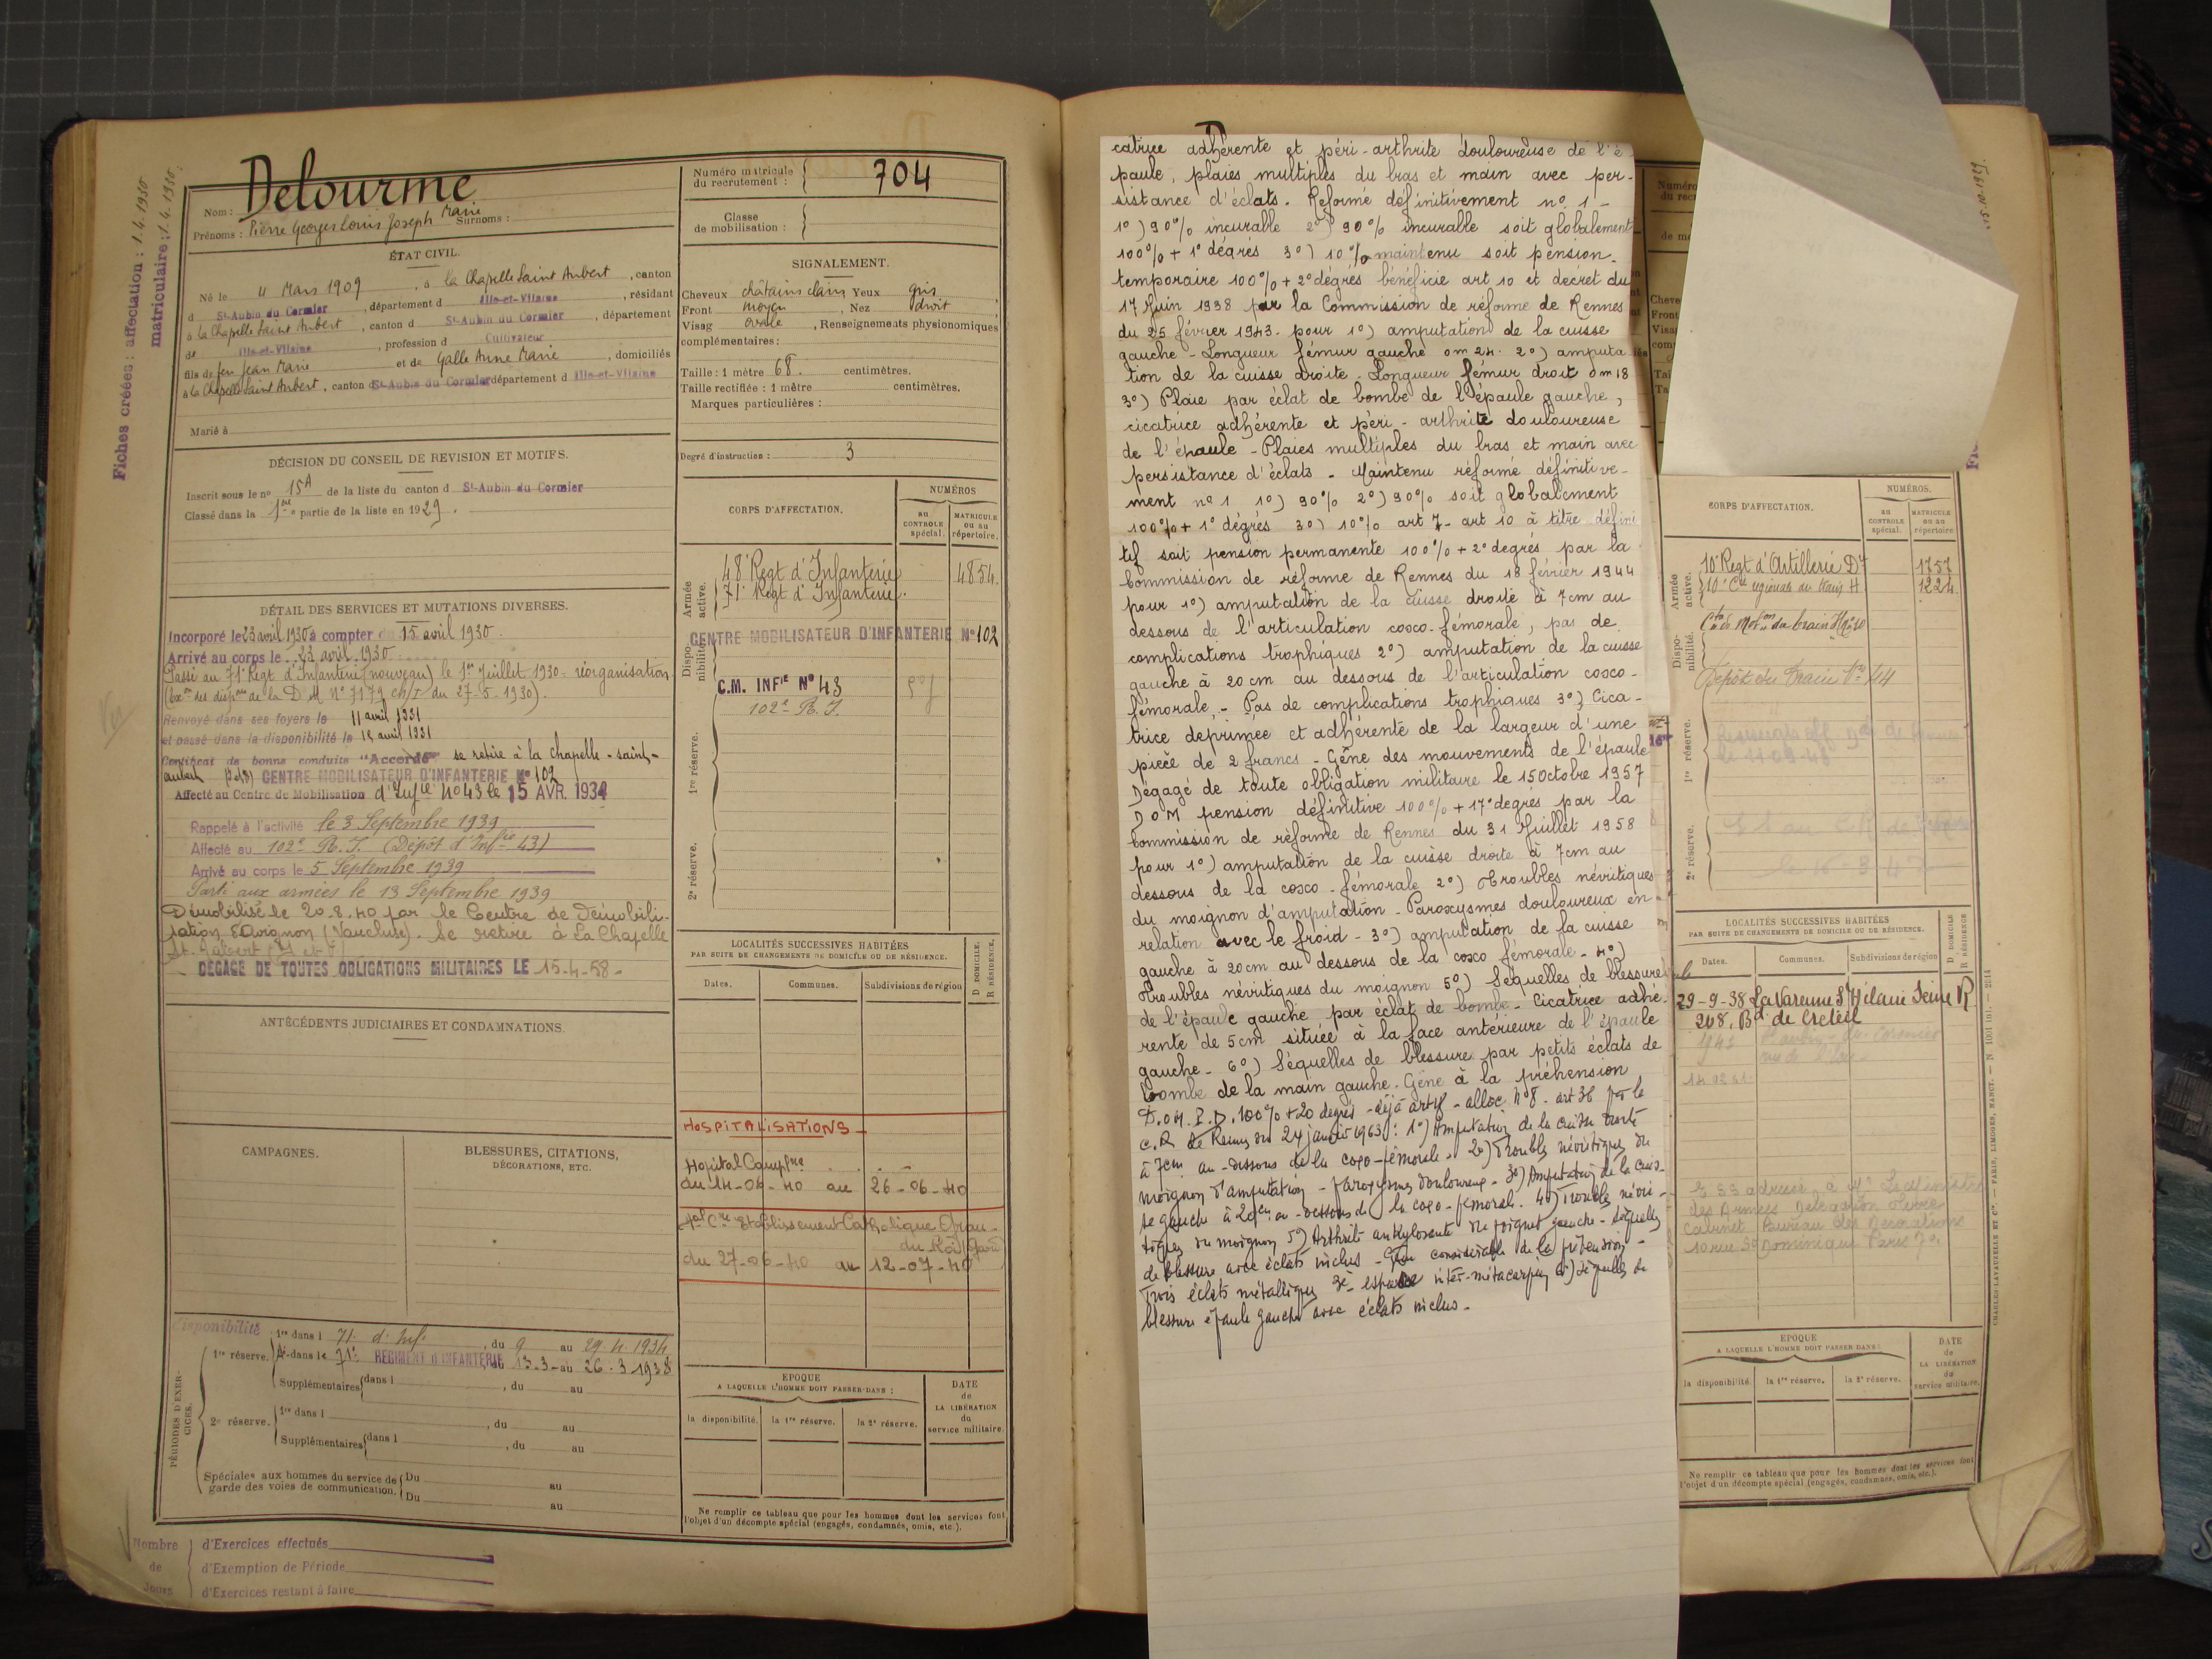 Fiches créées : affectation : 1.4.1930
matriculaire : 1.4.1930.
Nom : Delourme
Prénoms : Pierre Georges Louis Joseph Marie Surnoms :
ÉTAT CIVIL.
Né le 4 Mars 1909, à la Chapelle Saint Aubert, canton
d St-Aubin du Cormier, département d Ille-et-Vilaine, résidant
à la Chapelle Saint Aubert, canton d St-Aubin du Cormier, département
de Ille-et-Vilaine, profession d Cultivateur
fils de feu Jean Marie et de Galle Anne Marie, domiciliés
à la Chapelle Saint Aubert, canton d St-Aubin du Cormier département d Ille-et-Vilaine
Marié à
DÉCISION DU CONSEIL DE REVISION ET MOTIFS.
Inscrit sous le no 15A de la liste du canton d St-Aubin du Cormier
Classé dans la 1re partie de la liste en 1929.
DÉTAIL DES SERVICES ET MUTATIONS DIVERSES.
Incorporé le 23 avril 1930 à compter du 15 avril 1930.
Arrivé au corps le 23 avril 1930
Passé au 71e Regt d'Infanterie (nouveau) le 1er Juillet 1930 - réorganisation
(Exon des dispons de la D.M. No 7179 du 27-5-1930).
Renvoyé dans ses foyers le 11 avril 1931
et passé dans la disponibilité le 15 avril 1931
Certificat de bonne conduite "Accordé" se retire à la chapelle-saint-
aubert CENTRE MOBILISATEUR D'INFANTERIE No 102
Affecté au Centre de Mobilisation d'Infie No 43 le 15 AVR. 1934
Rappelé à l'activité le 3 Septembre 1939
Affecté au 102e R.I. (Dépôt d'Infie 43)
Arrivé au corps le 5 Septembre 1939
Parti aux armées le 13 Septembre 1939
Démobilisé le 20.8.40 par le Centre de Démobili-
sation d'Avignon (Vaucluse). Se retire à La Chapelle
St. Aubert (I et V)
DÉGAGÉ DE TOUTES OBLIGATIONS MILITAIRES LE 15-4-58
ANTÉCÉDENTS JUDICIAIRES ET CONDAMNATIONS.
CAMPAGNES.
BLESSURES, CITATIONS,
DÉCORATIONS, ETC.
PÉRIODES D'EXERCICES.
Disponibilité
1re réserve. 1re dans l 71e d'Inf., du 9 au 29.4.1934
dans le 71e REGIMENT D'INFANTERIE, du 13.3 au 26.3 1938
Supplémentaires dans l , du au
2e réserve. 1re dans l , du au
Supplémentaires dans l , du au
Spéciales aux hommes du service de Du au
garde des voies de communication. Du au
Nombre de Jours
d'Exercices effectués
d'Exemption de Période
d'Exercices restant à faire
Numéro matricule
du recrutement : 704
Classe
de mobilisation :
SIGNALEMENT.
Cheveux châtains clairs Yeux gris
Front moyen, Nez droit
Visag ovale, Renseignements physionomiques
complémentaires :
Taille : 1 mètre 68. centimètres.
Taille rectifiée : 1 mètre centimètres.
Marques particulières :
Degré d'instruction : 3
CORPS D'AFFECTATION.
NUMÉROS
AU CONTROLE spécial.
MATRICULE OU AU répertoire.
Armée active.
48e Regt d'Infanterie 4854.
71e Regt d'Infanterie.
Disponibilité
CENTRE MOBILISATEUR D'INFANTERIE No 102
C.M. INFIE No 43
102e R.I.
1re réserve.
2e réserve.
LOCALITÉS SUCCESSIVES HABITÉES
PAR SUITE DE CHANGEMENTS DE DOMICILE OU DE RÉSIDENCE.
Dates. Communes. Subdivisions de région
D. DOMICILE. R. RÉSIDENCE.
HOSPITALISATIONS
Hôpital Complre
du 14-06-40 au 26-06-40
Etablissement Catholique Grau-
du Roi (Gard)
du 27-06-40 au 12-07-40
EPOQUE
A LAQUELLE L'HOMME DOIT PASSER DANS :
la disponibilité. la 1re réserve. la 2e réserve.
DATE de LA LIBÉRATION du service militaire.
Ne remplir ce tableau que pour les hommes dont les services font
l'objet d'un décompte spécial (engagés, condamnés, omis, etc.).
catrice adhérente et péri-arthrite douloureuse de l'é
paule, plaies multiples du bras et main avec per-
sistance d'éclats. Réformé définitivement no 1 -
1o) 90% incurable 2o) 90% incurable soit globalement
100% + 1o degrés 3o) 10% maintenu soit pension
temporaire 100% + 2o degrés bénéficie art 10 et décret du
17 Juin 1938 par la Commission de réforme de Rennes
du 25 février 1943. pour 1o) amputation de la cuisse
gauche - Longueur fémur gauche 0m24. 2o) amputa
tion de la cuisse droite. Longueur fémur droit 0m18
3o) Plaie par éclat de bombe de l'épaule gauche,
cicatrice adhérente et péri-arthrite douloureuse
de l'épaule - Plaies multiples du bras et main avec
persistance d'éclats - Maintenu réformé définitive-
ment no 1 1o) 90% 2o) 90% soit globalement
100% + 1o degrés 3o) 10% art 7 - art 10 à titre défini
tif soit pension permanente 100% + 2o degrés par la
Commission de réforme de Rennes du 18 février 1944
pour 1o) amputation de la cuisse droite à 7cm au
dessous de l'articulation cosco-fémorale, pas de
complications trophiques 2o) amputation de la cuisse
gauche à 20 cm au dessous de l'articulation cosco-
fémorale, - Pas de complications trophiques 3o) Cica-
trice déprimée et adhérente de la largeur d'une
pièce de 2 francs - Gêne des mouvements de l'épaule
Dégagé de toute obligation militaire le 15 Octobre 1957
D O M pension définitive 100% + 17o degrés par la
Commission de réforme de Rennes du 31 Juillet 1958
pour 1o) amputation de la cuisse droite à 7cm au
dessous de la cosco-fémorale 2o) Troubles névritiques
du moignon d'amputation - Paroxysmes douloureux en
relation avec le froid - 3o) amputation de la cuisse
gauche à 20cm au dessous de la cosco fémorale - 4o)
Troubles névritiques du moignon 5o) Séquelles de blessure
de l'épaule gauche par éclat de bombe - Cicatrice adhé-
rente de 5cm située à la face antérieure de l'épaule
gauche - 6o) Séquelles de blessure par petits éclats de
bombe de la main gauche. Gêne à la préhension
D.O.M. P.D. 100% + 20 degrés - déjà art 18 - alloc no 8 - art 36 par la
C.R. de Rennes du 24 janvier 1963 : 1o) Amputation de la cuisse droite
à 7cm au-dessous de la coxo-fémorale. 2o) Troubles névritiques du
moignon d'amputation - paroxysmes douloureux - 3o) Amputation de la cuis-
se gauche à 20cm au-dessous de la coxo-fémorale. 4o) Troubles névri-
tiques du moignon 5o) Arthrite ankylosante du poignet gauche - séquelles
de blessure avec éclats inclus - Gêne considérable de la préhension -
Trois éclats métalliques 3e espace inter-métacarpien 6o) séquelles de
blessure épaule gauche avec éclats inclus -
15.10.1929.
CORPS D'AFFECTATION.
NUMÉROS.
AU CONTROLE spécial.
MATRICULE OU AU répertoire
Armée active.
10e Regt d'Artillerie Dre 1757
10e Cie régionale du train H. 1224
Disponibilité.
Dépôt du Train No 44
1re réserve.
2e réserve.
LOCALITÉS SUCCESSIVES HABITÉES
PAR SUITE DE CHANGEMENTS DE DOMICILE OU DE RÉSIDENCE.
Dates. Communes. Subdivisions de région
D. DOMICILE R. RÉSIDENCE
29-9-38 La Varenne St Hilaire Seine R
208, Bd de Créteil
E S S adressé à Mr Le Ministre
des Armées
Cabinet Bureau des Décorations
10 rue St Dominique Paris 7o
EPOQUE
A LAQUELLE L'HOMME DOIT PASSER DANS :
la disponibilité. la 1re réserve. la 2e réserve.
DATE de LA LIBÉRATION du service militaire.
Ne remplir ce tableau que pour les hommes dont les services font
l'objet d'un décompte spécial (engagés, condamnés, omis, etc.).